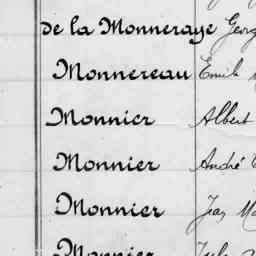 de la Monneraye Georg
Monnereau Emile
Monnier Albert
Monnier André
Monnier Jean Ma
Monnier Jules